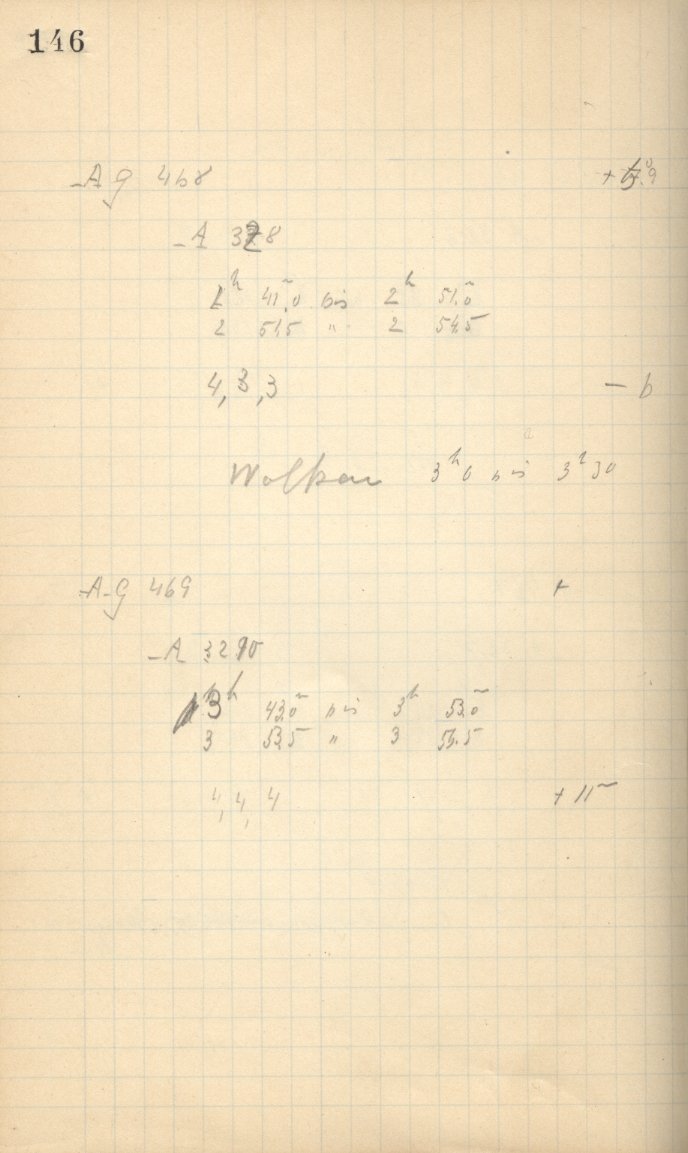 146
A g 468
A 328
2h 41m,0 bis 2h 51m,0
2 51,5 " 2 54,5
4, 3, 3 — 6
Wolken 3h 0 bis 3h 30
A g 469 +
A 3290
3h 43m,0 bis 3h 53m,0
3 53,5 " 3 56,5
4, 4, 4 + 11m